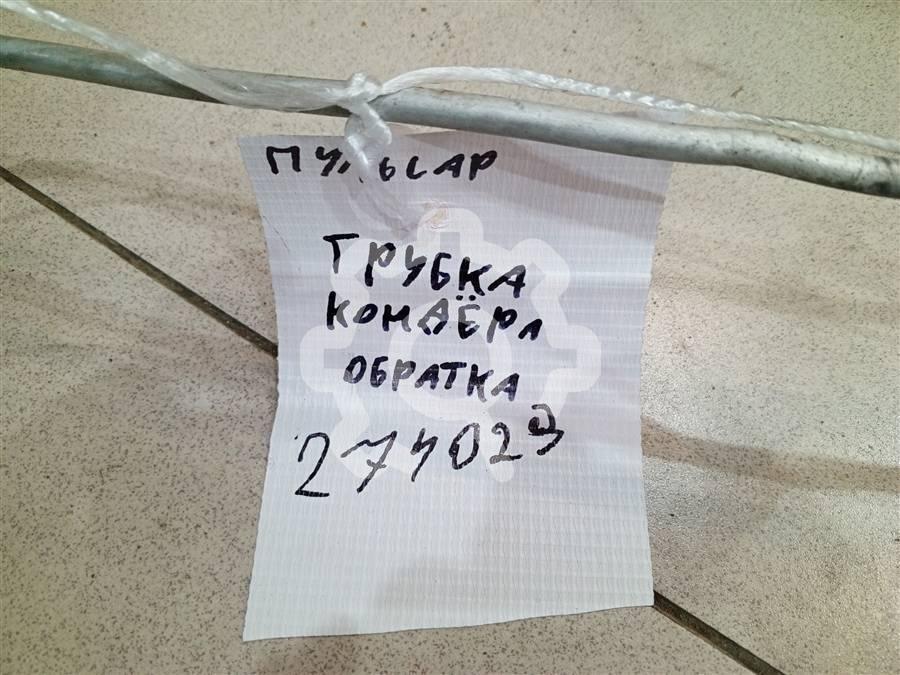 ПУЛЬСАР
ТРУБКА
КОНДЁРА
ОБРАТКА
274023